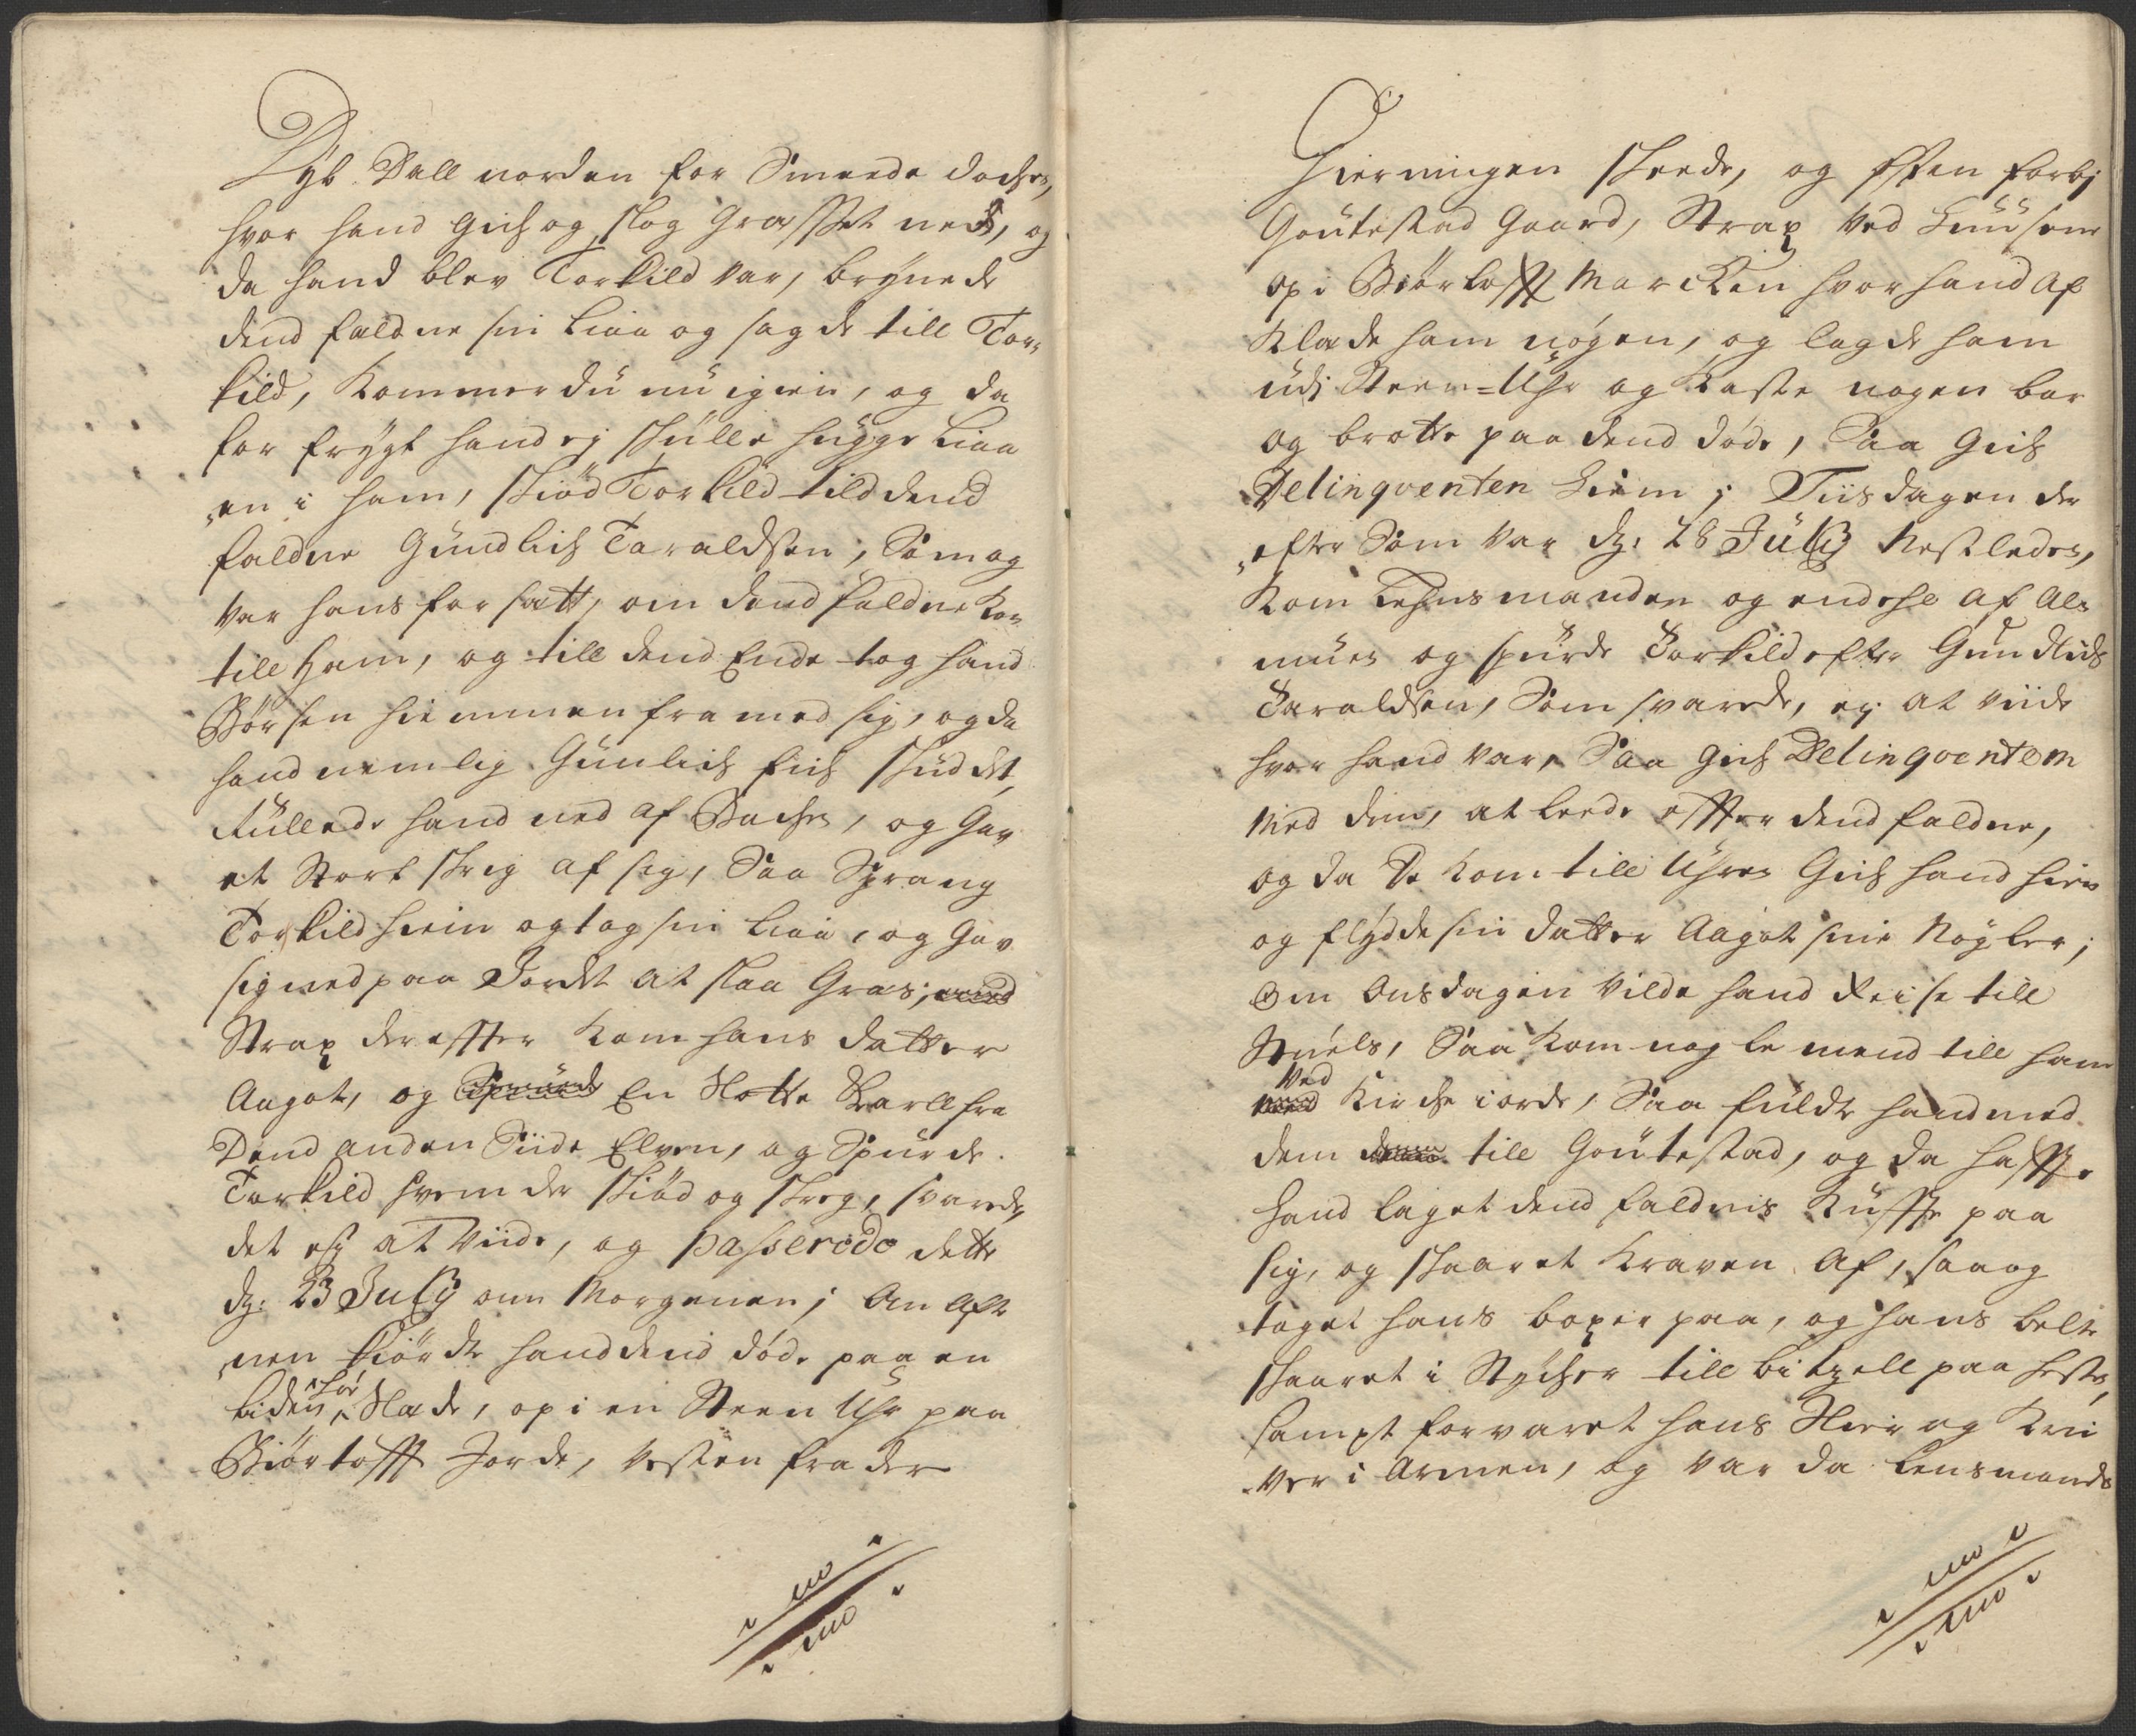 Dyb Dall norden for Smeede dochen,
hvor hand gich og slog Græsset ned, og
da hand blev Torkild var, brÿnede
dend faldne sin Liaa og sagde till Tor-
kild, Kommer du nu igien, og da
for frÿgt hand ej skulle hugge Liaa
en i ham, skiød Torkild till dend
faldne Gundlich Taraldsen, Som og
var hans forsatt, om dend faldne kom
till ham, og till dend Ende tog hand
Børsen hiemmen fra med sig, og da
hand nemlig Gunlich fich skuddet,
Rullede hand ned af Bachen, og Gav
et Stort skrig af sig, Saa Sprang
Torkild hiem og tog sin Liaa, og Gav
sig ned paa Jordet at slaa Græs;
Strax derefter kom hans datter
Aagot, og En Notto Karll fra
Dend anden Siide Elven, og Spurde
Torkild hvem der skiød og skreg, svarede,
det ej at viide, og passerede dette
dg: 23 July om Morgenen; Om Aft
nen kiørde hand dend døde paa en
liden Slæde, op i en Steen Uhr paa
Biørtofft Jorde, vesten fra der
Gierningen skeede, og østen forbj
Goutestad Gaard, Strax ved Huusene
op i Biørtofft Marcken hvor hand af
Klæde ham nøgen, og lagde ham
udi Steen-Uhr og kaste nogen bar
og brotte paa dend døde, Saa gich
Delinqventen hiem; Tiisdagen der
efter Som var dg: 28 July Nestleden,
Kom Lehnsmanden og endeel af Al-
muen og spurde Torkild efter Gundlich
Taraldsen, Som svarede, ej at viide
hvor hand var, Saa gich Delinqventen
med dem, at leede effter dend faldne,
og da De kom till Uhren Gich hand hiem
og flÿdde sin datter Aagot sine Nøgler;
Om Onsdagen vilde hand Reise till
Snéels, Saa kom nogle mend till ham
ved Kirche iorde, Saa fuldte hand med
dem till Goutestad, og da haffde
hand taget dend faldnis Kuffte paa
sig, og skaaret Kraven af, saa og
taget hans boxer paa, og hans belte
skaaret i Stÿcher till bitzell paa hesten,
sampt forvaret hans Sleir og Kni
ver i Armen, og var da Lensmands